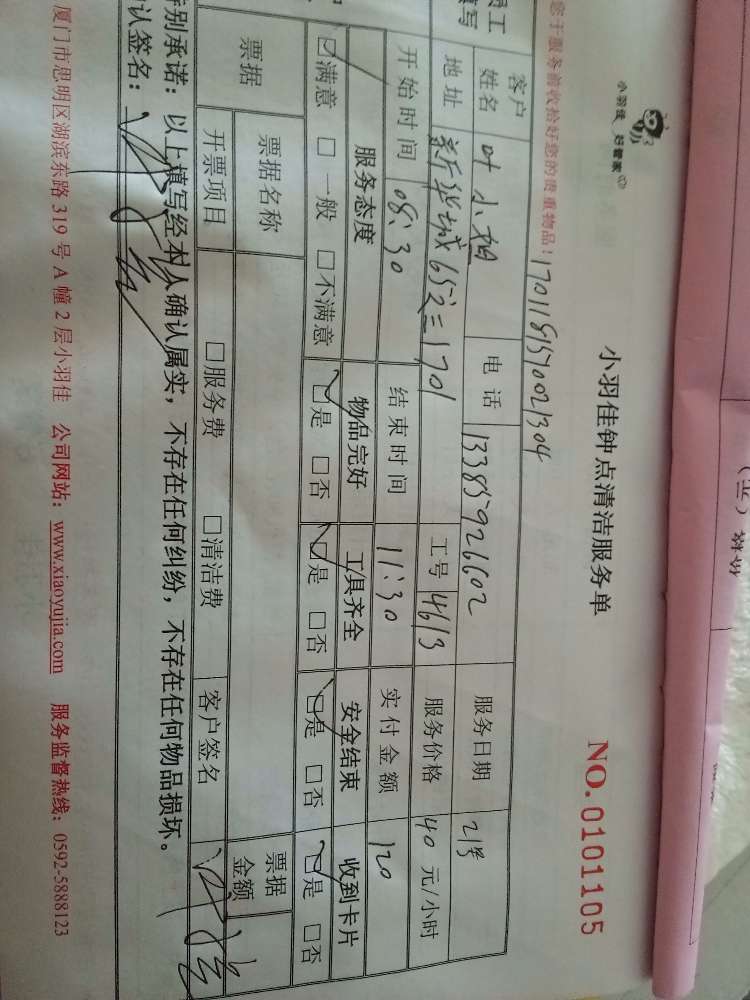 小羽佳 好管家
小羽佳钟点清洁服务单
NO.0101105
您于服务前收拾好您的贵重物品！
1701181570021304
客户姓名 叶小姐 电话 13385926602 服务日期 21号
地址 新华城65之二1701 工号 4613 服务价格 40 元/小时
开始时间 08:30 结束时间 11:30 实付金额 120
服务态度 物品完好 工具齐全 安全结束 收到卡片
☑满意 □一般 □不满意 ☑是 □否 ☑是 □否 ☑是 □否 ☑是 □否
票据 票据名称 票据金额
开票项目 □服务费 □清洁费 客户签名
特别承诺：以上填写经本人确认属实，不存在任何纠纷，不存在任何物品损坏。
认签名：
厦门市思明区湖滨东路 319 号 A 幢 2 层小羽佳 公司网站：www.xiaoyujia.com 服务监督热线：0592-5888123